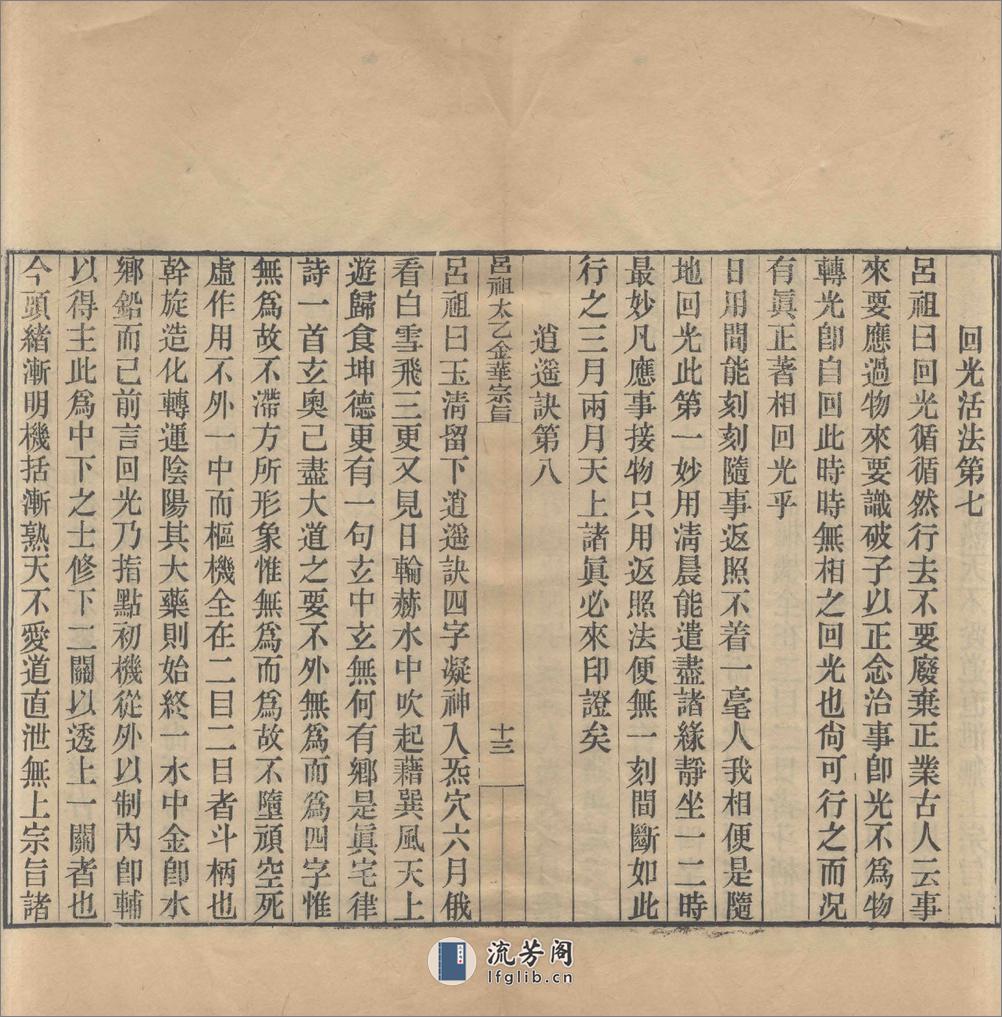 回光活法第七
呂祖曰回光循循然行去不要廢棄正業古人云事
來要應過物來要識破子以正念治事卽光不爲物
轉光卽自回此時時無相之回光也尙可行之而况
有眞正著相回光乎
日用間能刻刻隨事返照不着一毫人我相便是隨
地回光此第一妙用淸晨能遣盡諸緣靜坐一二時
最妙凡應事接物只用返照法便無一刻間斷如此
行之三月兩月天上諸眞必來印證矣
逍遥訣第八
呂祖太乙金華宗旨
十三
呂祖曰玉淸留下逍遥訣四字凝神入炁穴六月俄
看白雪飛三更又見日輪赫水中吹起藉巽風天上
遊歸食坤德更有一句玄中玄無何有鄉是眞宅律
詩一首玄奧已盡大道之要不外無爲而爲四字惟
無爲故不滯方所形象惟無爲而爲故不墮頑空死
虛作用不外一中而樞機全在二目二目者斗柄也
斡旋造化轉運陰陽其大藥則始終一水中金卽水
鄉鉛而已前言回光乃指點初機從外以制內卽輔
以得主此爲中下之士修下二關以透上一關者也
今頭緒漸明機括漸熟天不愛道直泄無上宗旨諸
流芳阁
lfglib.cn